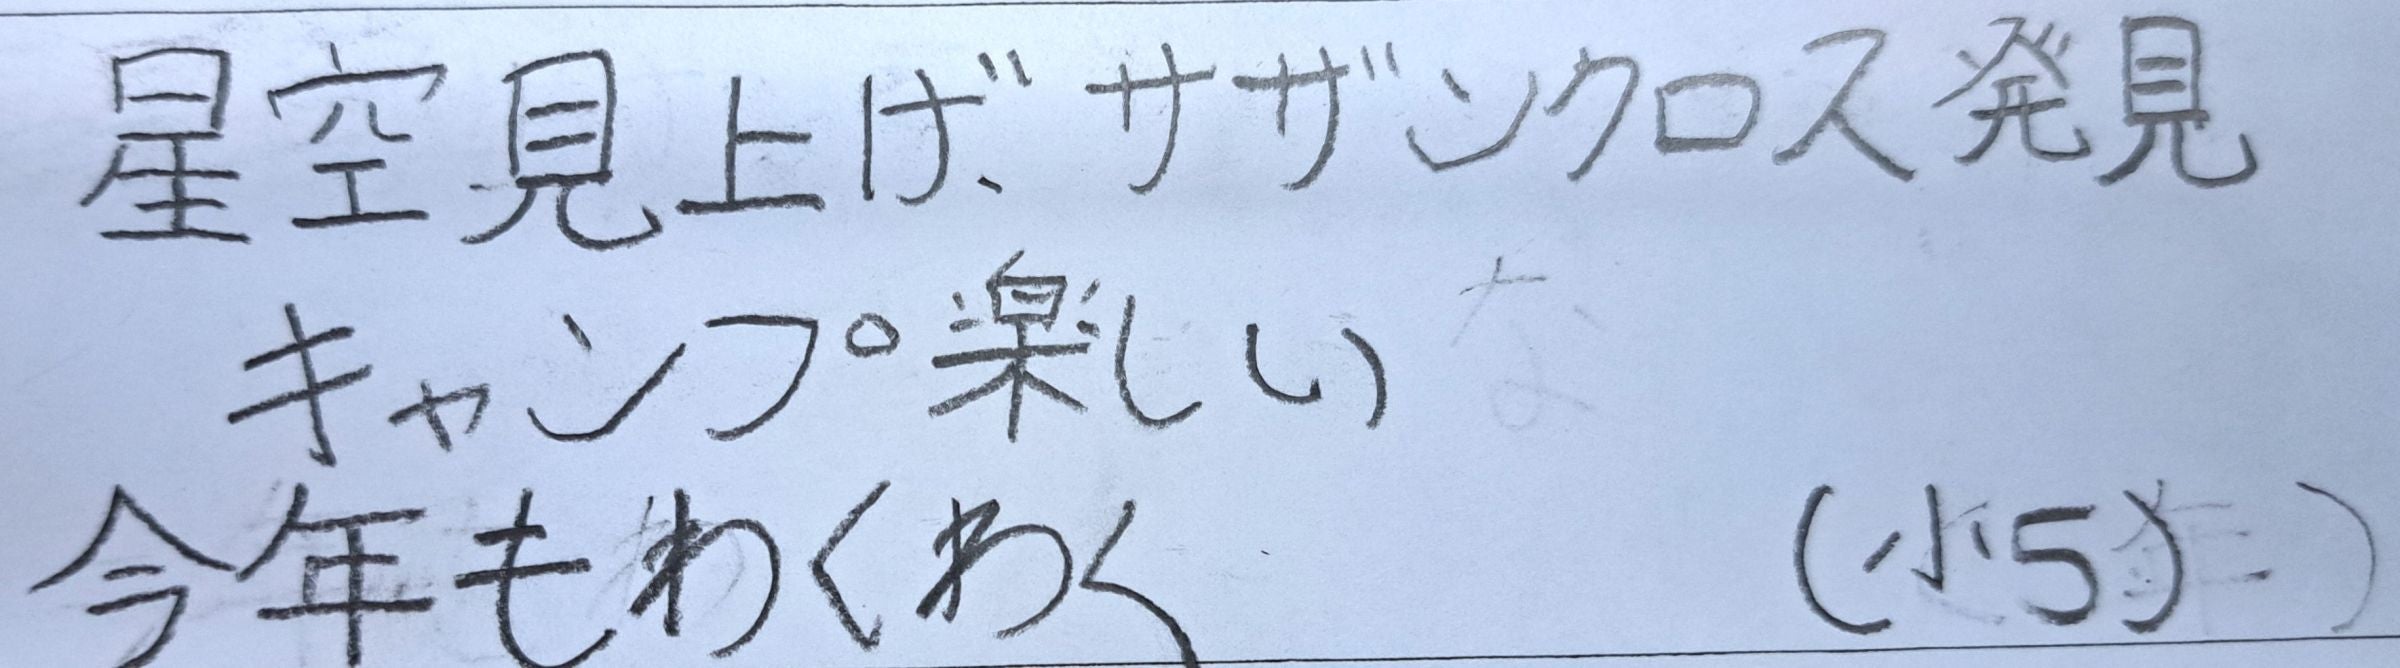 星空見上げ、サザンクロス発見
キャンプ楽しい
今年もわくわく
(小5)